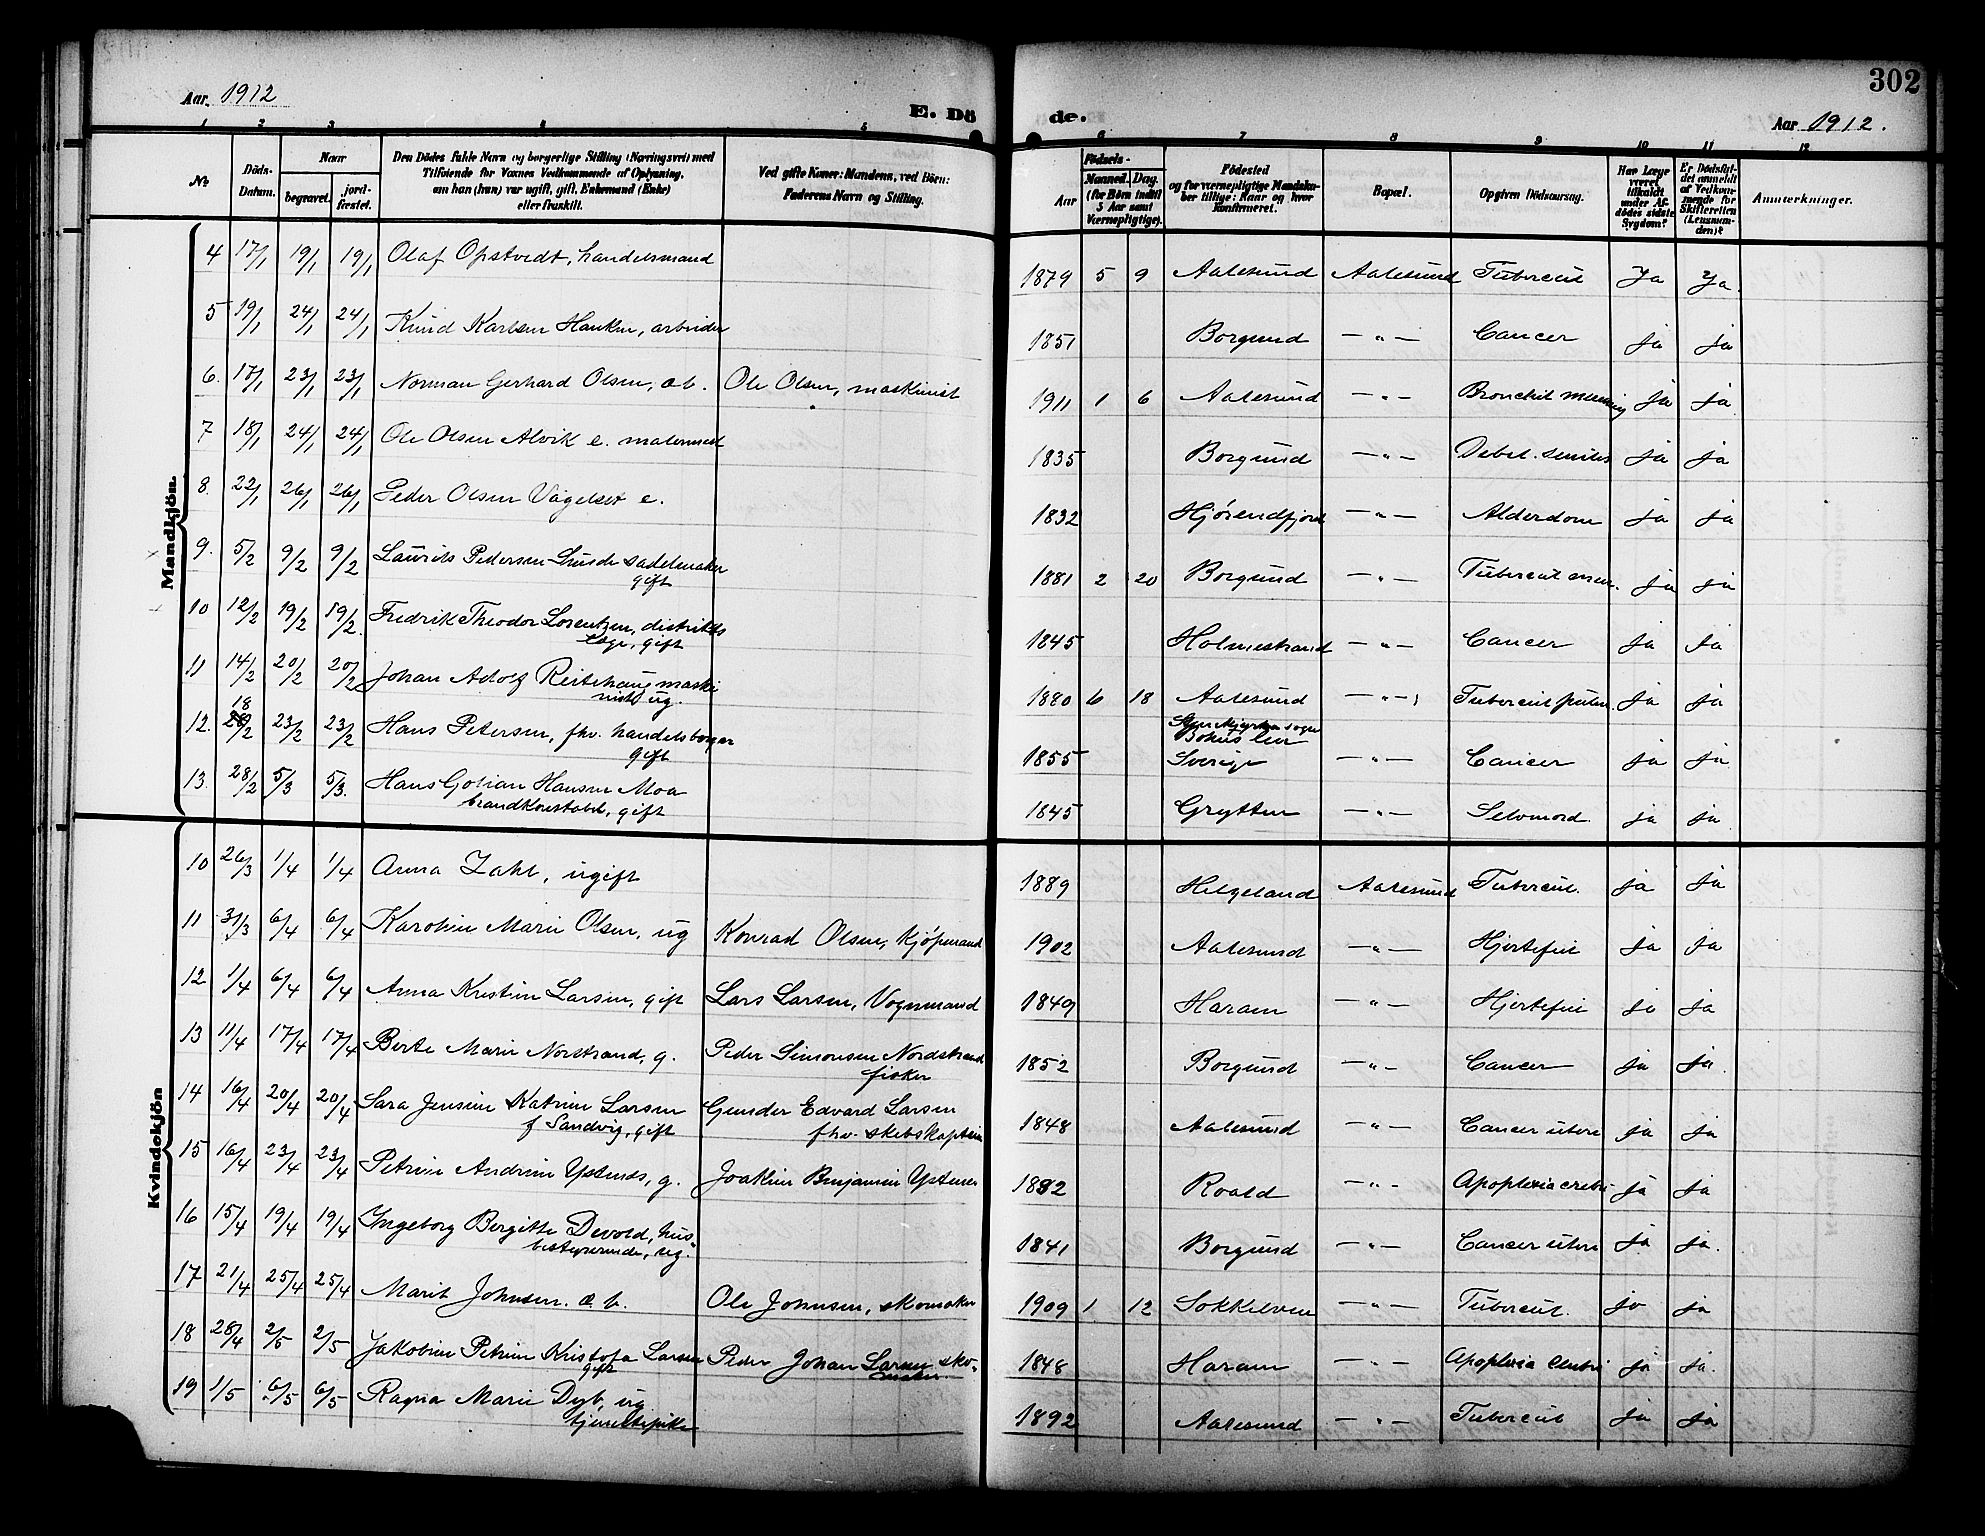 302
Aar 1912
E. Dö de.
Aar 1912.
1 2 3 4 5 6 7 8 9 10 11 12
No
Döds-Datum.
Naar
begravet.
jord-fæstet.
Den Dödes fulde Navn og borgerlige Stilling (Næringsvei) med
Tilföiende for Voxnes Vedkommende af Oplysning,
om han (hun) var ugift, gift, Enkemand (Enke)
eller fraskilt.
Ved gifte Koner: Mandens, ved Börn:
Faderens Navn og Stilling.
Födsels-
Aar
Maaned. Dag.
(for Börn indtil
5 Aar samt
Værnepligtige).
Födested
og for værnepligtige Mandska-
ber tillige: Naar og hvor
konfirmeret.
Bopæl.
Opgiven Dödsaarsag.
Har Læge
været
tilkaldt
under Af-
dödes sidste
Sygdom?
Er Dödsfal-
det anmeldt
af Vedkom-
mende for
Skifteretten
(Lensman-
den)?
Anmærkninger.
Mandkjön.
4 17/1 19/1 19/1 Olaf Opstvedt, handelsmand 1879 5 9 Aalesund Aalesund Tubercul Ja Ja.
5 19/1 24/1 24/1 Knud Karlsen Hanken, arbeider 1851 Borgund — " — Cancer ja ja
6. 17/1 23/1 23/1 Norman Gerhard Olsen, æ b. Ole Olsen, maskinist 1911 1 6 Aalesund — " — Bronchit ja ja
7 18/1 24/1 24/1 Ole Olsen Alvik e. 1835 Borgund — " — Debil. senilis ja ja
8. 22/1 26/1 26/1 Peder Olsen Vågelset e. 1832 Hjørendfjord — " — Alderdom ja ja
9. 5/2 9/2 9/2 Laurits Pedersen-Lunde sadelmaker
gift 1881 2 20 Borgund — " — Tubercul ja ja
10 12/2 19/2 19/2. Fredrik Theodor Lorentzen, distrikts
læge, gift 1845 Holmestrand — " — Cancer ja ja
11 14/2 20/2 20/2 Johan Adolf Reitehaug maski
nist ug. 1880 6 18 Aalesund — " — Tubercul pulm. ja ja
12. 18/2 23/2 23/2 Hans Petersen, fhv. handelsborger
gift 1855 sogn
Bohus len
Sverige — " — Cancer ja ja
13. 28/2 5/3 5/3. Hans Hansen Moa
brandkonstabel, gift 1845 Grytten — " — Selvmord. ja ja
Kvindekjön
10 26/3 1/4 1/4 Anna Zahl, ugift 1889 Helgeland Aalesund Tubercul. ja ja
11 31/3 6/4 6/4 Karoline Marie Olsen, ug Konrad Olsen, kjøpmand 1902 Aalesund — " — Hjertefeil ja ja
12 1/4 6/4 6/4 Anna Kristine Larsen, gift Lars Larsen, Vognmand 1849 Haram — " — Hjertefeil ja ja
13 11/4 17/4 17/4 Berte Marie Norstrand, g. Peder Simonsen Nordstrand
fisker 1852 Borgund — " — Cancer ja ja.
14 16/4 20/4 20/4 Sara Jensine Katrine Larsen
f Sandvig, gift Gunder Edvard Larsen
fhv. skibskaptein 1848 Aalesund — " — Cancer uteri ja ja
15 16/4 23/4 23/4 Petrine Andrine Ystenes, g. Joakim Benjamin Ystenes Roald — " — Apoplexia cerebri ja ja
16 15/4 19/4 19/4 Ingeborg Bergitte Devold, hus-
bestyrerinde, ug. 1841 Borgund — " — Cancer uteri ja ja.
17 21/4 25/4 25/4 Marit Johnsen. æ b. Ole Johnsen, skomaker 1909 1 12 Søkkelven — " — Tubercul. ja ja
18 28/4 2/5 2/5 Jakobine Petrine Kristofa Larsen
gift Peder Johan Larsen sko-
maker. 1848 Haram — " — Apoplexia cerebri ja ja.
19 1/5 6/5 6/5 Ragna Marie Dyb, ug
tjenestepike 1892 Aalesund — " — Tubercul ja ja